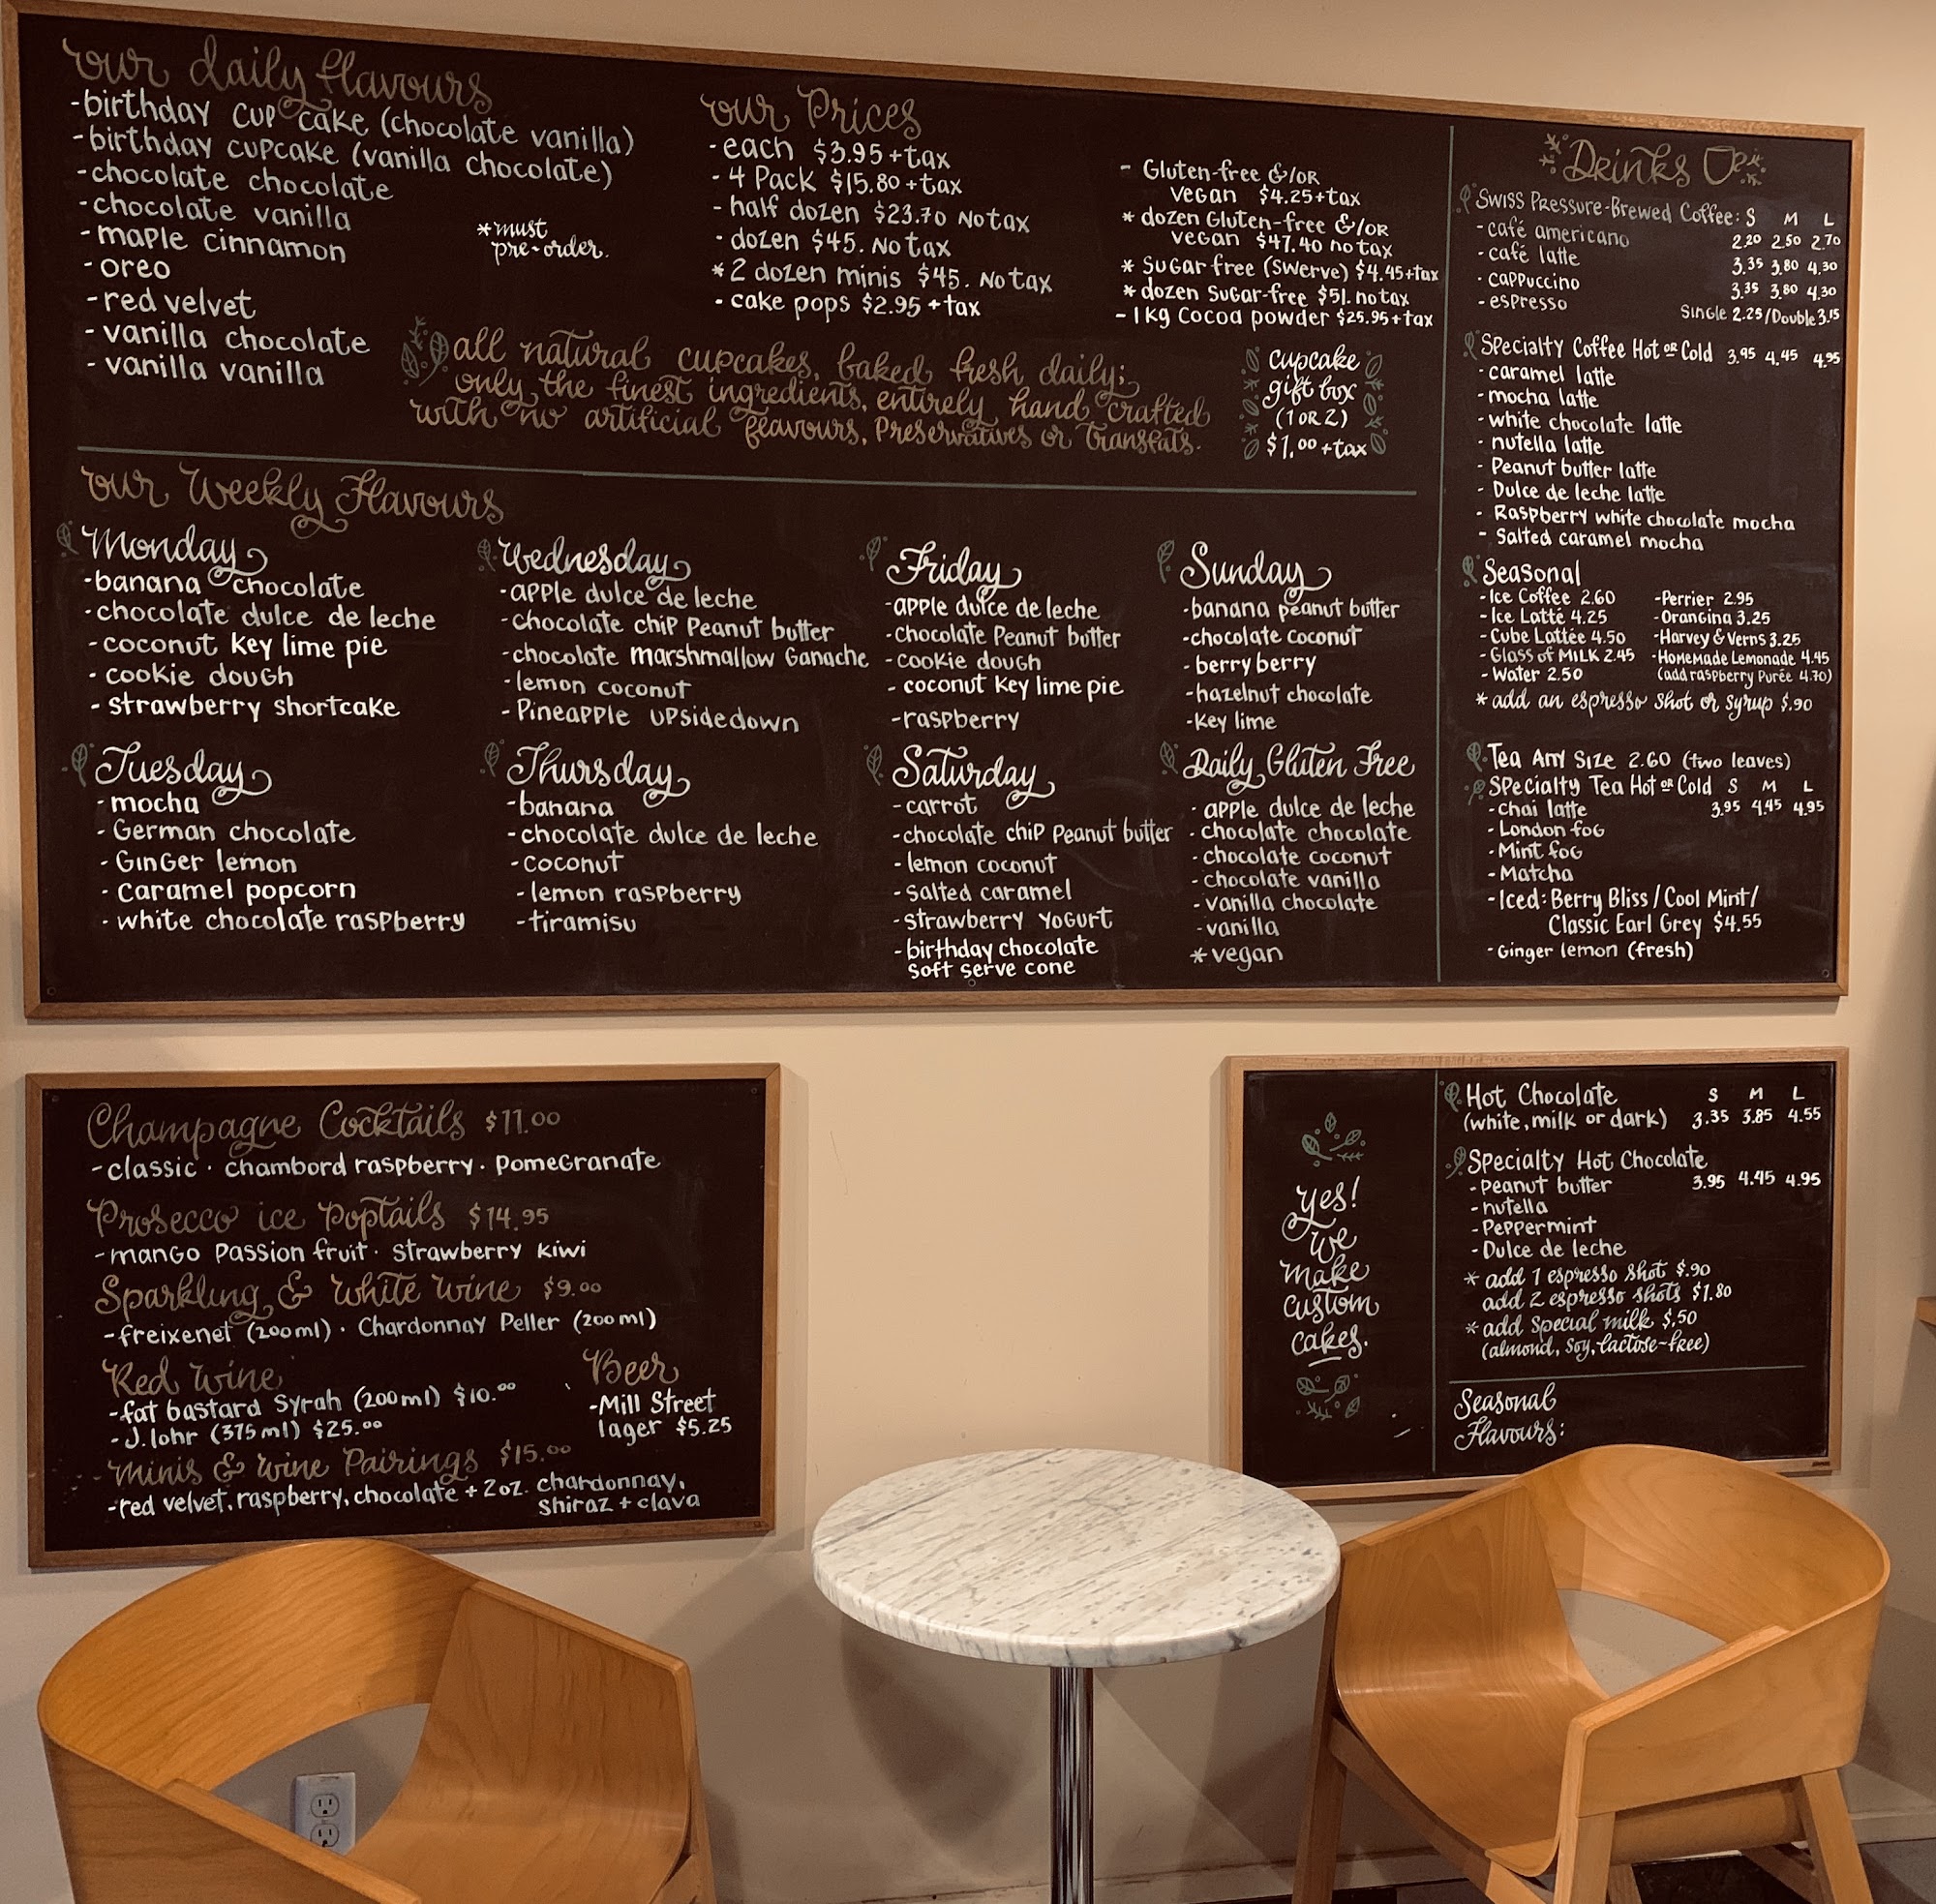 our daily flavours
-birthday cup cake (chocolate vanilla)
-birthday cupcake (vanilla chocolate)
-chocolate chocolate
-chocolate vanilla
-maple cinnamon
-oreo
-red velvet
-vanilla chocolate
-vanilla vanilla
*must
pre-order.
our Prices
-each $3.95+tax
-4 Pack $15.80+tax
-half dozen $23.70 No tax
-dozen $45. No tax
*2 dozen minis $45. No tax
-cake pops $2.95+tax
-Gluten-free &/or
vegan $4.25+tax
*dozen Gluten-free &/or
vegan $47.40 no tax
*Sugar free (swerve) $4.45+tax
*dozen Sugar-free $51. no tax
-1kg Cocoa powder $25.95+tax
all natural cupcakes, baked fresh daily;
only the finest ingredients, entirely hand crafted
with no artificial flavours, Preservatives or transfats.
cupcake
gift box
(1 OR 2)
$1.00+tax
our Weekly Flavours
Monday
-banana chocolate
-chocolate dulce de leche
-coconut key lime pie
-cookie dough
-strawberry shortcake
Tuesday
-mocha
-German chocolate
-Ginger lemon
-caramel popcorn
-white chocolate raspberry
Wednesday
-apple dulce de leche
-chocolate chip Peanut butter
-chocolate marshmallow Ganache
-lemon coconut
-Pineapple upsidedown
Thursday
-banana
-chocolate dulce de leche
-coconut
-lemon raspberry
-tiramisu
Friday
-apple dulce de leche
-chocolate Peanut butter
-cookie dough
-coconut key lime pie
-raspberry
Saturday
-carrot
-chocolate chip Peanut butter
-lemon coconut
-salted caramel
-strawberry yogurt
-birthday chocolate
soft serve cone
Sunday
-banana peanut butter
-chocolate coconut
-berry berry
-hazelnut chocolate
-key lime
Daily Gluten Free
-apple dulce de leche
-chocolate chocolate
-chocolate coconut
-chocolate vanilla
-vanilla chocolate
-vanilla
*vegan
Drinks
Swiss Pressure-Brewed Coffee: S M L
-café americano 2.20 2.50 2.70
-café latte 3.35 3.80 4.30
-cappuccino 3.35 3.80 4.30
-espresso Single 2.25/Double 3.15
Specialty Coffee Hot or Cold 3.95 4.45 4.95
-caramel latte
-mocha latte
-white chocolate latte
-nutella latte
-Peanut butter latte
-Dulce de leche latte
-Raspberry white chocolate mocha
-Salted caramel mocha
Seasonal
-Ice Coffee 2.60 -Perrier 2.95
-Ice Latté 4.25 -Orangina 3.25
-Cube Lattée 4.50 -Harvey & Verns 3.25
-Glass of Milk 2.45 -Homemade Lemonade 4.45
-Water 2.50 (add raspberry Purée 4.70)
*add an espresso shot or syrup $.90
Tea Any Size 2.60 (two leaves)
Specialty Tea Hot or Cold S M L
-chai latte 3.95 4.45 4.95
-London fog
-Mint fog
-Matcha
-Iced: Berry Bliss / Cool Mint/
Classic Earl Grey $4.55
-Ginger lemon (fresh)
Champagne Cocktails $11.00
-classic · chambord raspberry · pomegranate
Prosecco ice Poptails $14.95
-mango Passion fruit · strawberry kiwi
Sparkling & White Wine $9.00
-freixenet (200ml) · Chardonnay Peller (200ml)
Red Wine
-fat bastard Syrah (200ml) $10.00
-J.lohr (375ml) $25.00
Beer
-Mill Street
lager $5.25
Minis & Wine Pairings $15.00
-red velvet, raspberry, chocolate + 2oz. chardonnay,
shiraz + clava
yes!
we
make
custom
cakes.
Hot Chocolate S M L
(white, milk or dark) 3.35 3.85 4.55
Specialty Hot Chocolate
-Peanut butter 3.95 4.45 4.95
-nutella
-Peppermint
-Dulce de leche
*add 1 espresso shot $.90
add 2 espresso shots $1.80
*add special milk $.50
(almond, soy, lactose-free)
Seasonal
Flavours: